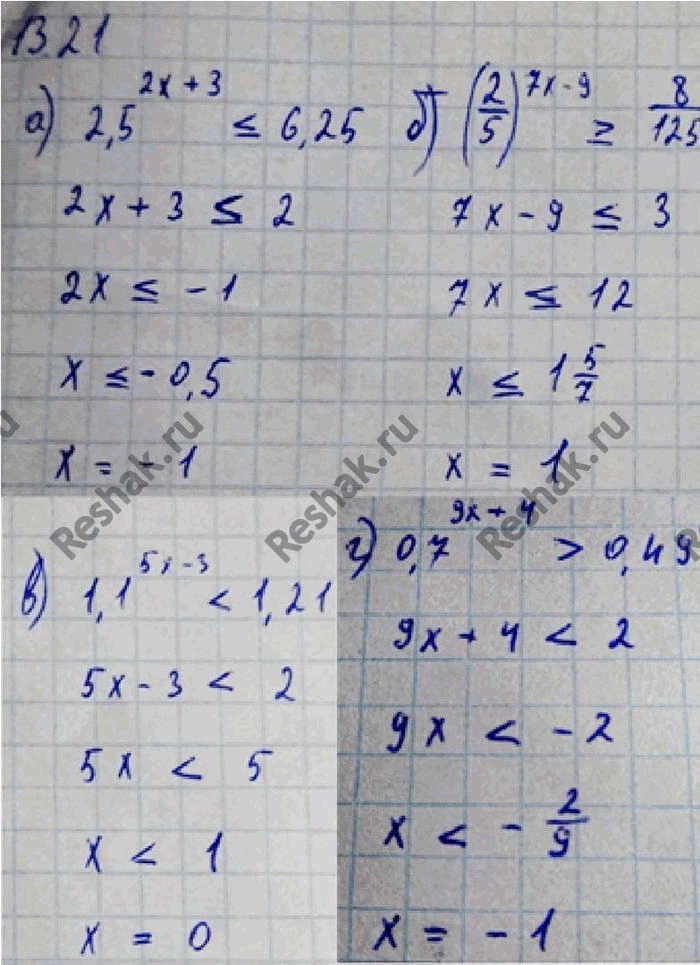 13.21
а) 2,5^{2x+3} ≤ 6,25
2x + 3 ≤ 2
2x ≤ -1
x ≤ -0,5
x = -1
б) (2/5)^{7x-9} ≥ 8/125
7x - 9 ≤ 3
7x ≤ 12
x ≤ 1 5/7
x = 1
в) 1,1^{5x-3} < 1,21
5x - 3 < 2
5x < 5
x < 1
x = 0
г) 0,7^{9x+4} > 0,49
9x + 4 < 2
9x < -2
x < -2/9
x = -1
Reshak.ru
Reshak.ru
Reshak.ru